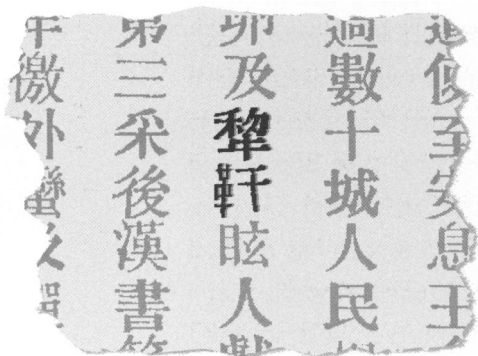 似至安息王
過數十城人民相
卵及犂靬眩人獻
第三采後漢書第
年徼外蠻